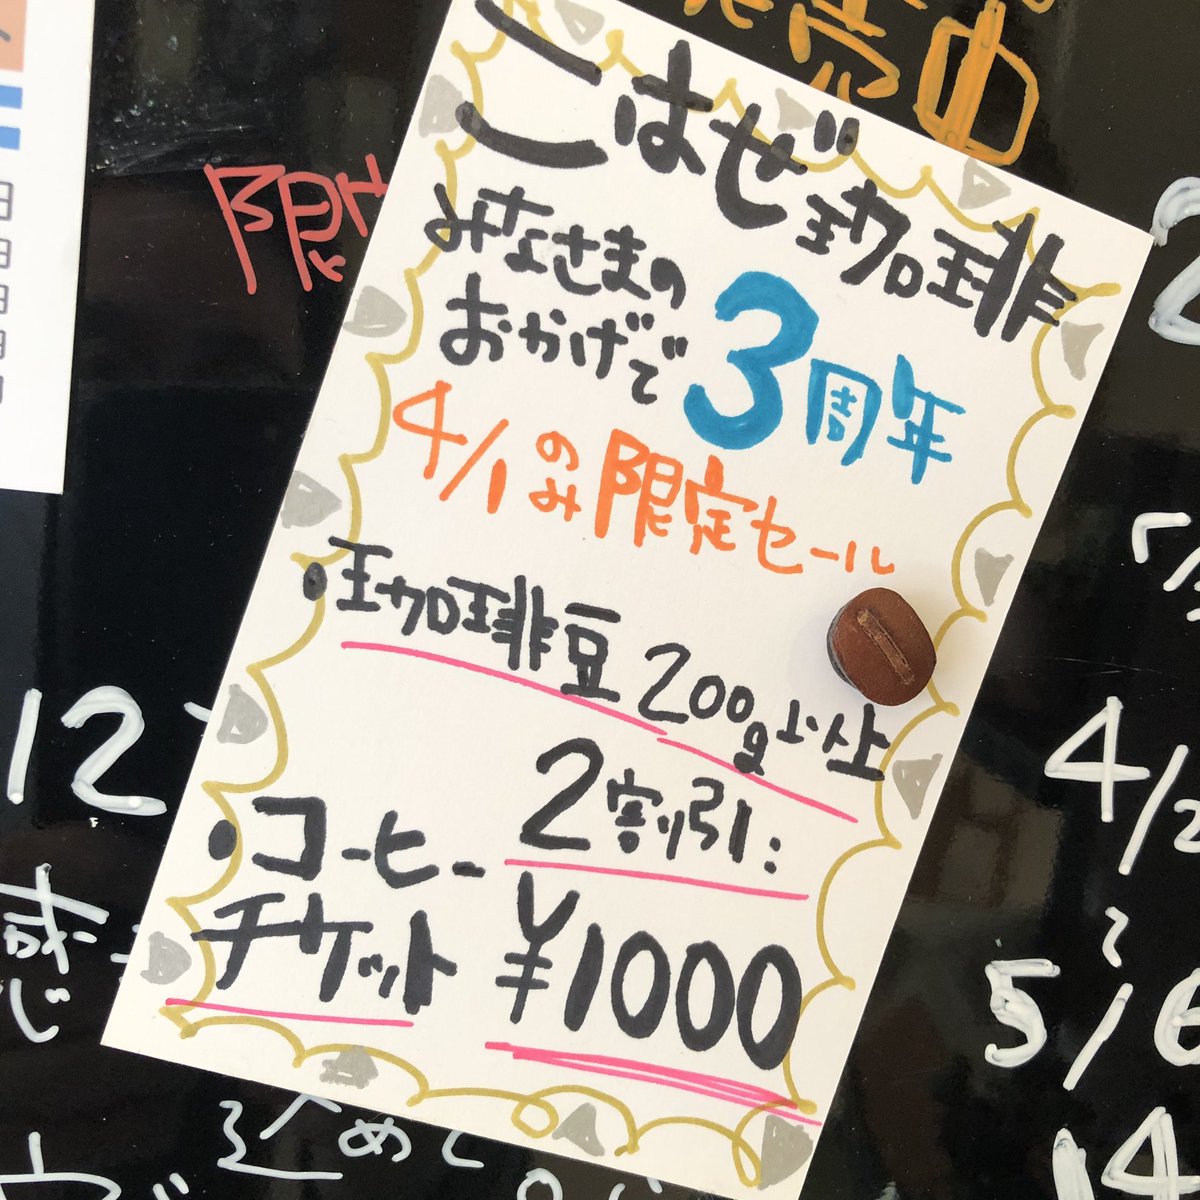 こはぜ珈琲
みなさまの
おかげで
3周年
4/1のみ限定セール
・珈琲豆200g以上
2割引:
・コーヒー
チケット ¥1000
営業中
限
12
感じ
4/2
5/6
14